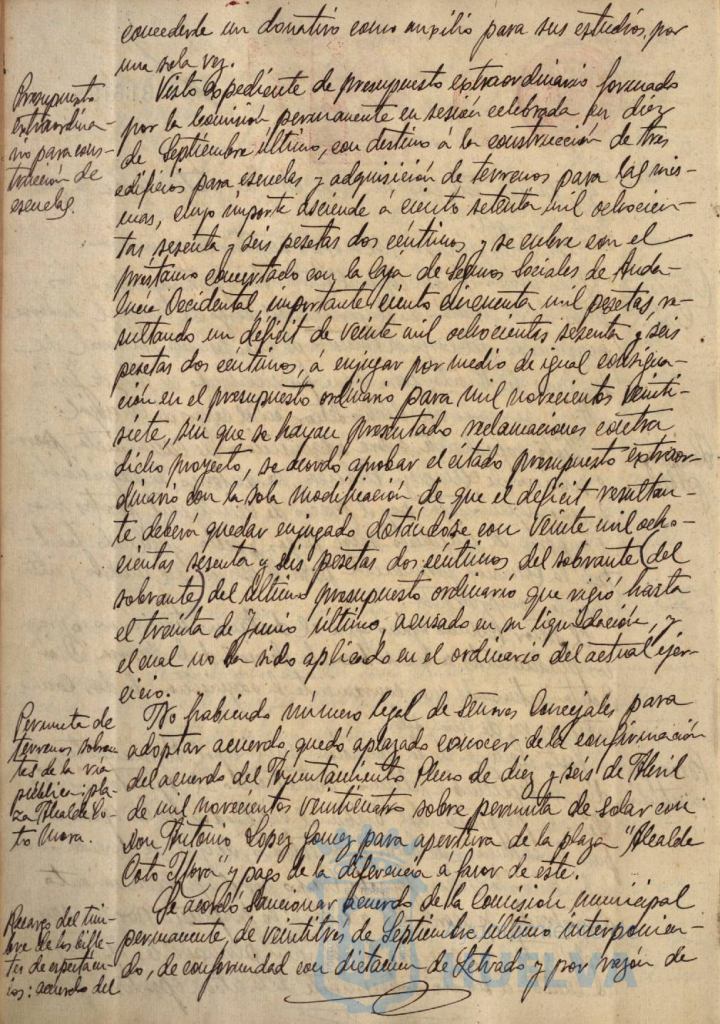 concederle un donativo como auxilio para sus estudios, por
una sola vez.
Presupuesto
extraordina-
rio para cons-
trucción de
escuelas.
Visto expediente de presupuesto extraordinario formado
por la Comisión permanente en sesión celebrada en diez
de Septiembre último, con destino á la construcción de tres
edificios para escuelas y adquisición de terrenos para las mis-
mas, cuyo importe asciende á ciento setenta mil ochocien-
tas sesenta y seis pesetas dos céntimos y se cubre con el
préstamo concertado con la Caja de Seguros Sociales de Anda-
lucía Occidental, importante ciento cincuenta mil pesetas, re-
sultando un déficit de veinte mil ochocientas sesenta y seis
pesetas dos céntimos, á enjugar por medio de igual consigna-
ción en el presupuesto ordinario para mil novecientos veinti-
siete, sin que se hayan presentado reclamaciones contra
dicho proyecto, se acordó aprobar el citado presupuesto extraor-
dinario con la sola modificación de que el déficit resultan-
te deberá quedar enjugado dotándose con veinte mil ocho-
cientas sesenta y seis pesetas dos céntimos del sobrante (del
sobrante) del último presupuesto ordinario que rigió hasta
el treinta de Junio último, acusado en su liquidación, y
el cual no ha sido aplicado en el ordinario del actual ejer-
cicio.
Permuta de
terrenos sobran-
tes de la vía
pública: pla-
za Alcalde Co-
to Mora.
No habiendo número legal de Señores Concejales para
adoptar acuerdo, quedó aplazado conocer de la confirmación
del acuerdo del Ayuntamiento Pleno de diez y seis de Abril
de mil novecientos veinticuatro sobre permuta de solar con
Don Antonio López Gómez para apertura de la plaza "Alcalde
Coto Mora" y pago de la diferencia á favor de este.
Recargo del tim-
bre de los bille-
tes de espectácu-
los: acuerdo del
Se acordó sancionar acuerdo de la Comisión municipal
permanente, de veintitres de Septiembre último interponien-
do, de conformidad con dictamen de Letrado y por razón de
HUELVA